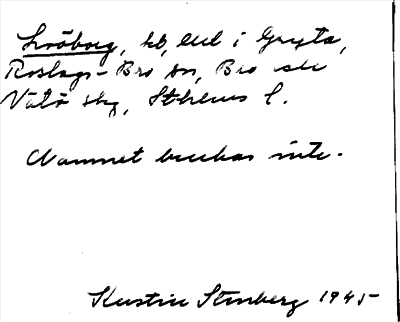 Livöborg, hb, del i Gryta,
Roslags-Bro sn, Bro och
Vätö skg, Sthlms l.
Namnet brukas inte.
Kerstin Stenberg 1945